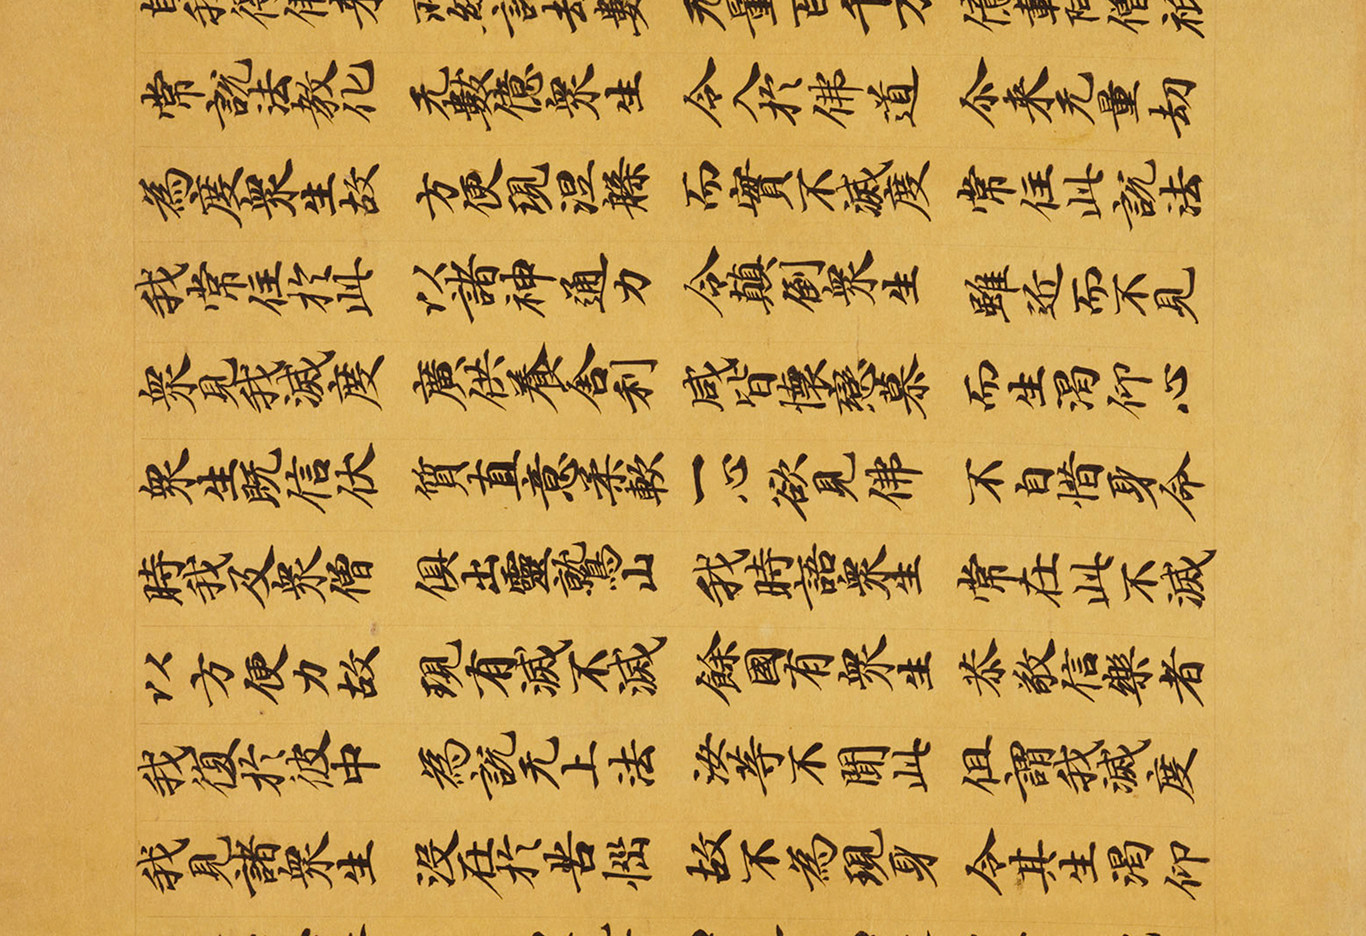 自我得佛来 所經諸劫數 无量百千万 億載阿僧祇
常說法教化 无數億衆生 令入於佛道 尒来无量劫
為度衆生故 方便現涅槃 而實不滅度 常住此說法
我常住於此 以諸神通力 令顛倒衆生 雖近而不見
衆見我滅度 廣供養舍利 咸皆懷戀慕 而生渴仰心
衆生既信伏 質直意柔軟 一心欲見佛 不自惜身命
時我及衆僧 俱出靈鷲山 我時語衆生 常在此不滅
以方便力故 現有滅不滅 餘國有衆生 恭敬信樂者
我復於彼中 為說无上法 汝等不聞此 但謂我滅度
我見諸衆生 没在於苦惱 故不為現身 令其生渴仰